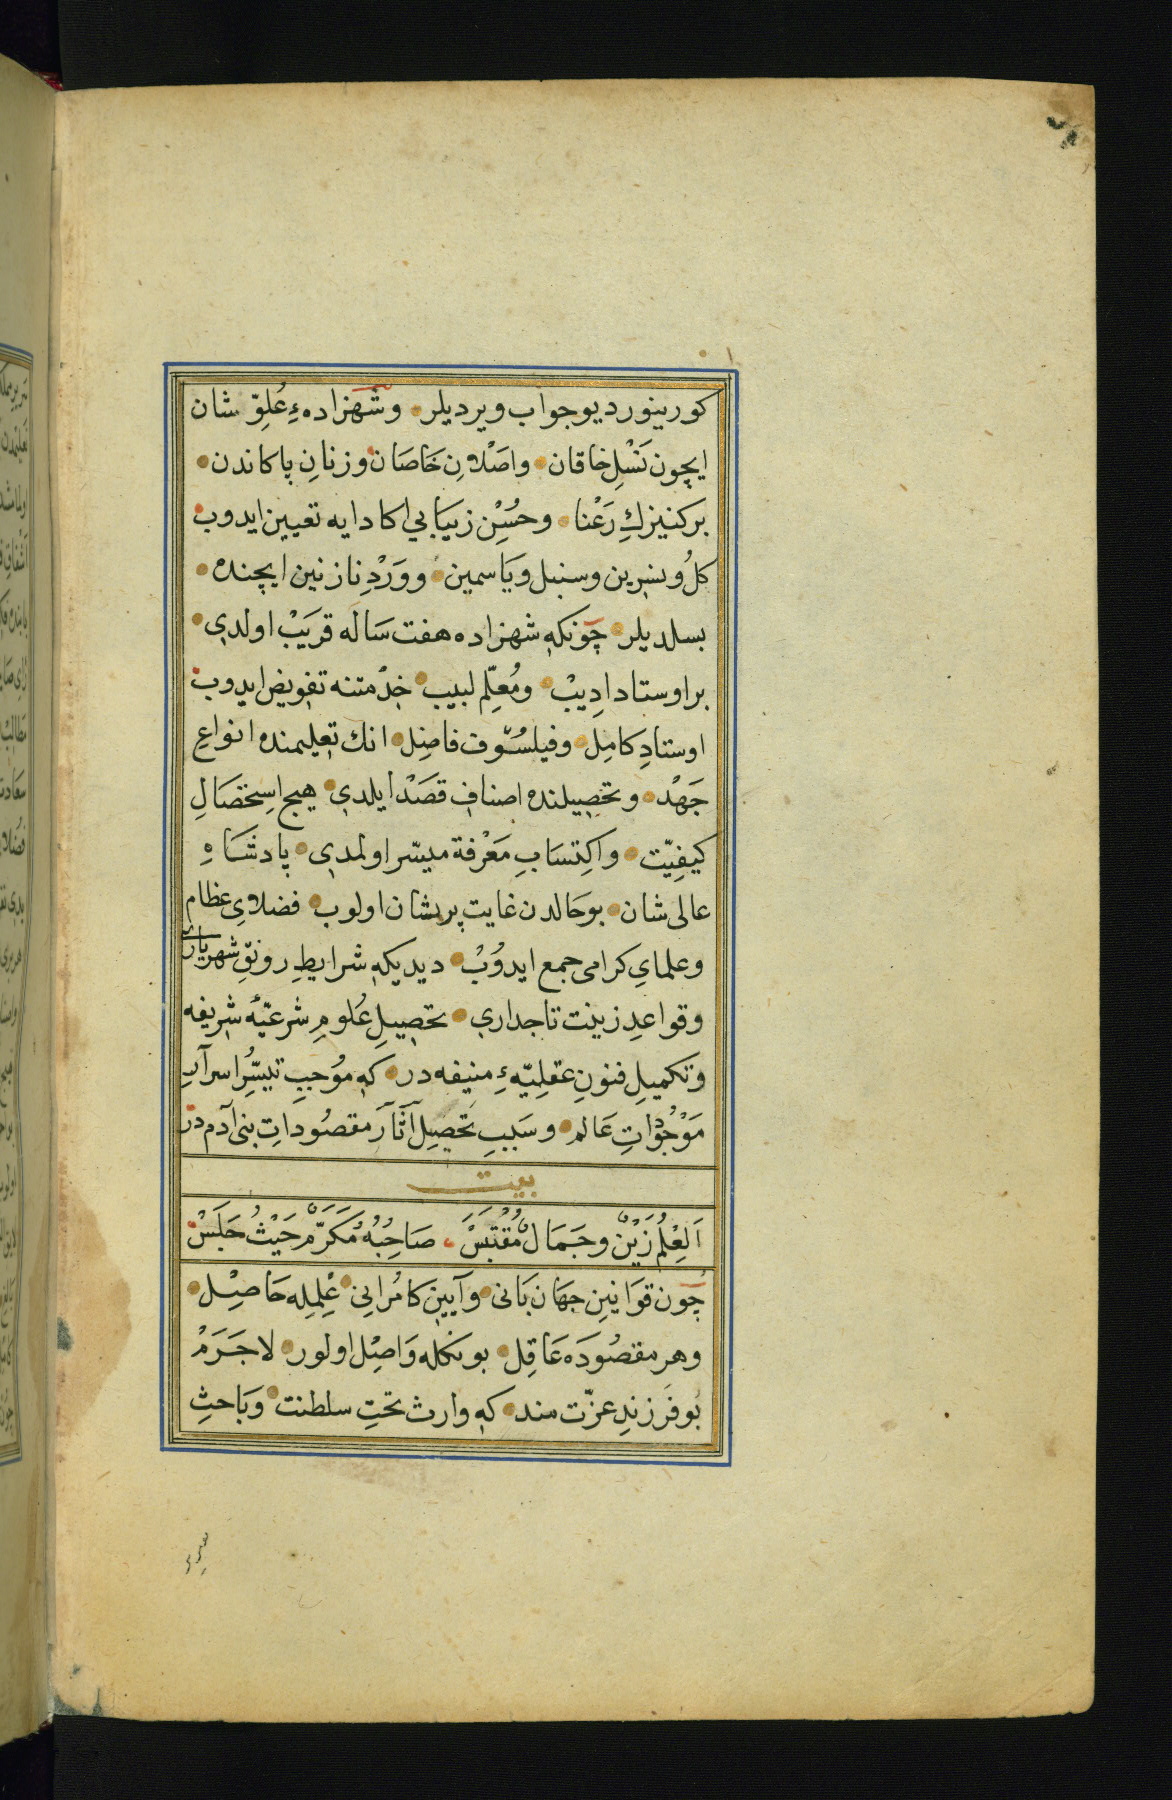 كورينور ديو جواب ويرديلر وشهزادهءِ عُلوِّ شان
ايچون نَسْلِ خاقان واصْلانِ خَاصَان وزنانِ پاكاندن
بر كنيزكِ رَعْنا وحُسْنِ زيبَايي اكا دايه تعيين ايدوب
كلُ ونسرين وسنبل ويَاسمين ووَرْدِ نازنين ايچنده
بسلديلر چَونكه شهزاده هفت سَالَه قريَبْ اولدى
بر اوستاد ادِيبْ ومُعلِّم لبيب خِدْمتنه تفويض ايدوب
اوستادِ كامِل وفيلسُوف فاضِل انك تعليمنده انواعِ
جَهْد وتحصيلنده اصنافِ قصَدْ ايلدى هيچ استِحْصَالِ
كيفِيّت واكِتسَابِ مَعْرفة ميسّر اولمدى پادشَاهِ
عالى شان بو حَالدن غايت پريشان اولوب فضلاىِ عظام
وعلماىِ كرامى جمع ايدوُبْ ديديكه شرايطِ رونقِ شهريارى
وقواعدِ زينت تاجدارى تحصيلِ عُلومِ شرعيّهٔ شريفه
وتكميلِ فنونِ عقلِيّهءِ منيفه در كه مُوجبِ تيسُّرِ اسرارِ
مَوْجُودَاتِ عَالم وسَببِ تَحْصِيلِ آثَارِ مقصُوداتِ بنى آدم در
بيت
اَلعِلْمُ زَيْنٌ وجَمَالٌ مُقْتَبَسْ صَاحِبُهُ مُكَرَّمٌ حَيْثُ جَلَسْ
چُون قوَانينِ جهَان بَانى وآيينِ كامُرانى عِلمِله حَاصِل
وهر مقصُودَه عَاقِل بونكله وَاصِل اولور لا جَرَمْ
بُو فَرزندِ عزّت مند كه وارث تختِ سلطنت وبَاحثِ
سرير